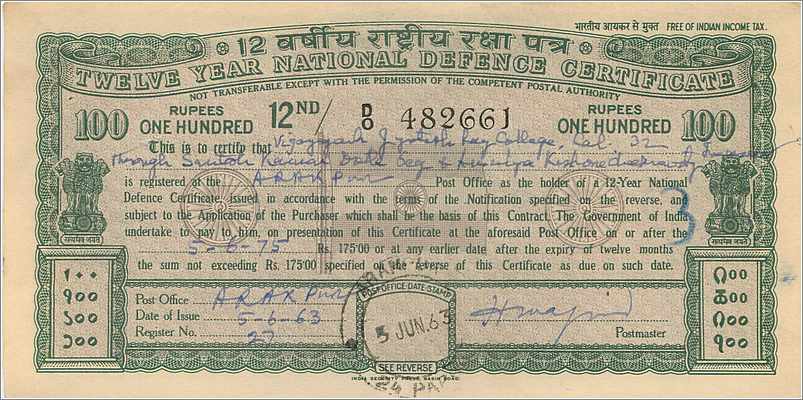 भारतीय आयकर से मुक्त FREE OF INDIAN INCOME TAX.
१२ वर्षीय राष्ट्रीय रक्षा पत्र
TWELVE YEAR NATIONAL DEFENCE CERTIFICATE
NOT TRANSFERABLE EXCEPT WITH THE PERMISSION OF THE COMPETENT POSTAL AUTHORITY
100 RUPEES ONE HUNDRED 12ND/ D/0 482661 RUPEES ONE HUNDRED 100
This is to certify that College, Cal. 32
through Santosh Kumar Datta &
is registered at the ARAKPUR Post Office as the holder of a 12-Year National
Defence Certificate, issued in accordance with the terms of the Notification specified on the reverse, and
subject to the Application of the Purchaser which shall be the basis of this Contract. The Government of India
undertake to pay to him, on presentation of this Certificate at the aforesaid Post Office on or after the
5-6-75 Rs. 175·00 or at any earlier date after the expiry of twelve months
the sum not exceeding Rs. 175·00 specified on the reverse of this Certificate as due on such date.
सत्यमेव जयते
सत्यमेव जयते
3
१००
Post Office ARAKPUR
Date of Issue 5-6-63
Register No. 27
POST-OFFICE-DATE-STAMP
5 JUN. 63
SEE REVERSE
Postmaster
INDIA SECURITY PRESS, NASIK ROAD.